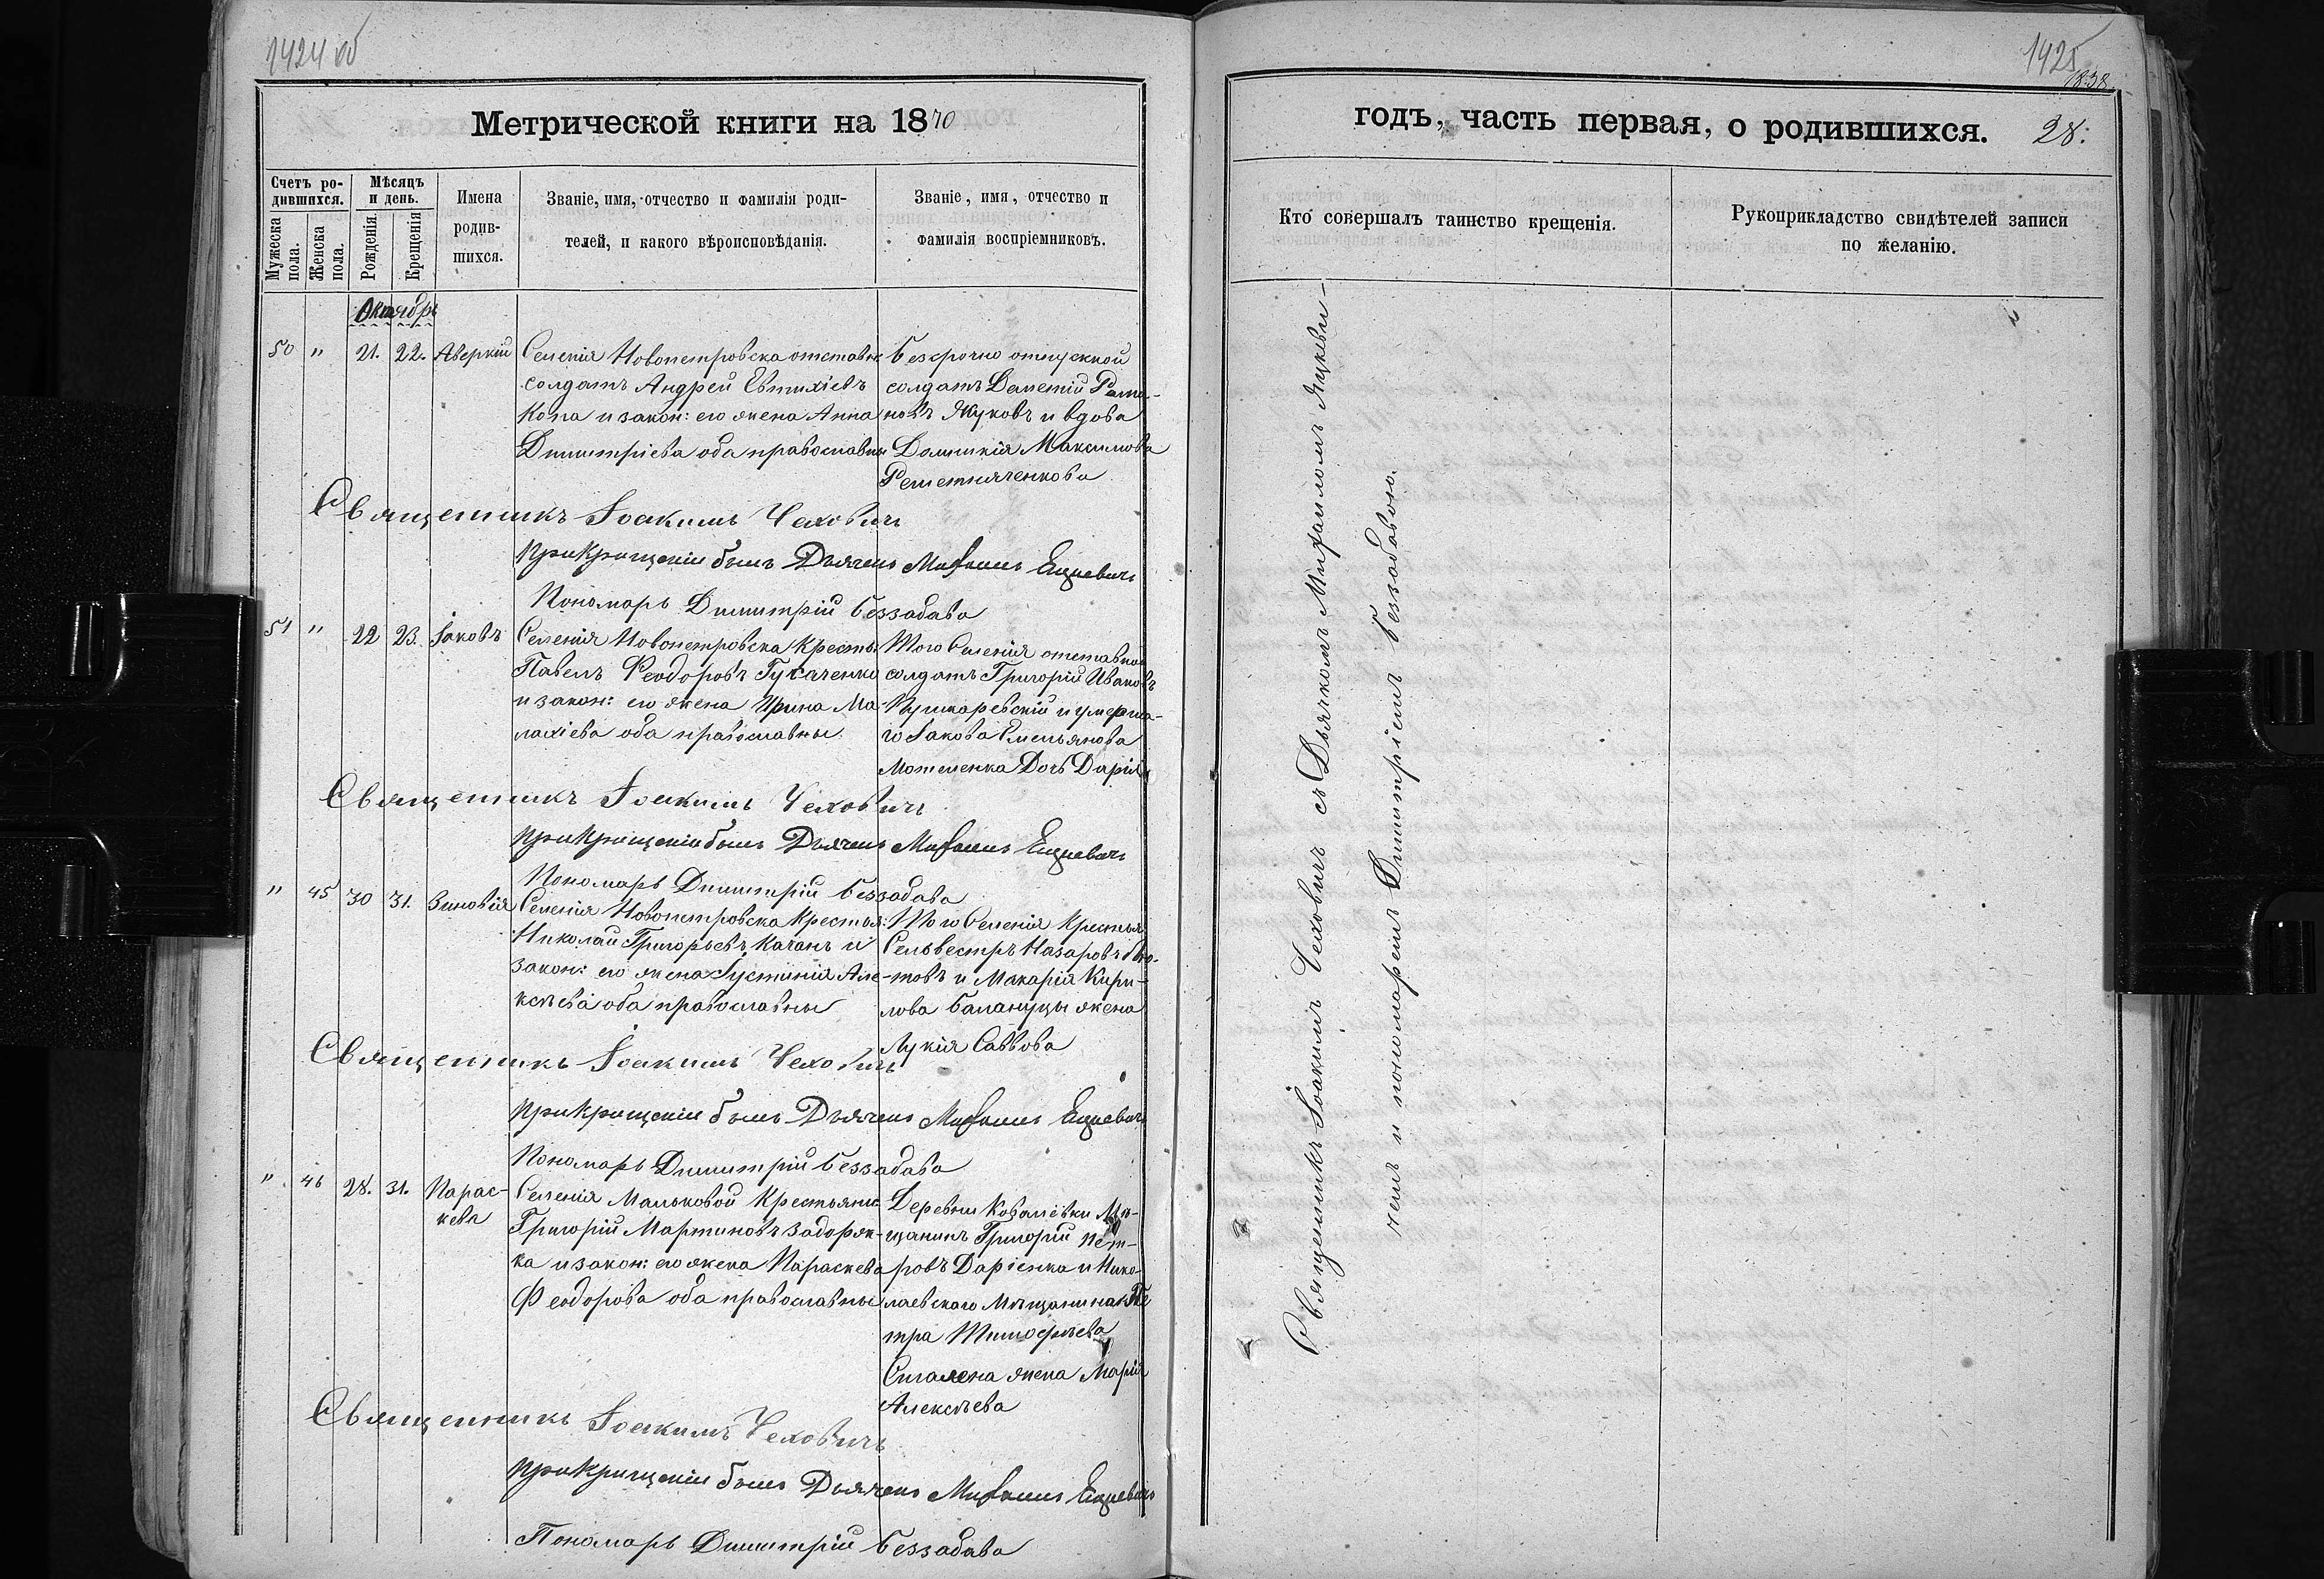 1424 об
Метрической книги на 1870
Счетъ ро-
дившихся.
Мужеска пола.
Женска пола.
Мѣсяцъ
и день.
Рожденія.
Крещенія
Имена
родив-
шихся.
Званіе, имя, отчество и фамилія роди-
телей, и какого вѣроисповѣданія.
Званіе, имя, отчество и
фамилія воспріемниковъ.
Октябрь
50 " 21. 22. Аверкій
Селенія Новопетровска отставн
солдатъ Андрей Евтихіевъ
Копа и закон: его жена Анна
Димитріева оба православны
Безсрочно отпускной
солдатъ Дементій Рома-
новъ Жуковъ и вдова
Домникія Максимова
Решетняченкова
Священникъ Іоакимъ Чеховичъ
При Крещеніи былъ Дьячекъ Михаилъ Яцкевичъ
Пономарь Димитрій Беззабава
51 " 22 23. Іаковъ
Селенія Новопетровска Кресть:
Павелъ Феодоровъ
и закон: его жена Ирина Ма-
лахіева оба православны.
Того Селенія отставной
солдатъ Григорій Ивановъ
Пушкаревскій и умерша-
го Іакова Емельянова
Мотеленка Дочь Дарія
Священникъ Іоакимъ Чеховичъ
При Крещеніи былъ Дьячекъ Михаилъ Яцкевичъ
Пономарь Димитрій Беззабава
" 45 30 31. Зиновія
Селенія Новопетровска Крестья:
Николай Григорьевъ Качанъ и
закон: его жена Іустинія Але-
ксѣева оба православны
Того Селенія Крестья:
Сельвестръ Назаровъ
и Макарія Кири-
лова Балануцы жена
Лукія Саввова
Священникъ Іоакимъ Чеховичъ
При Крещеніи былъ Дьячекъ Михаилъ Яцкевичъ
Пономарь Димитрій Беззабава
" 46 28. 31. Парас-
кева
Селенія Мальковой Крестьяни:
Григорій Мартиновъ Задорож-
ка и закон: его жена Параскева
Феодорова оба православны
Деревни Ковалевки Мѣ-
щанинъ Григорій Пет-
ровъ Даріенко и Нико-
лаевскаго Мѣщанина Пе
тра Тимофѣева
жена Марія
Алексѣева
Священникъ Іоакимъ Чеховичъ
При Крещеніи былъ Дьячекъ Михаилъ Яцкевичъ
Пономарь Димитрій Беззабава
1425
28.
годъ, часть первая, о родившихся.
Кто совершалъ таинство крещенія.
Рукоприкладство свидѣтелей записи
по желанію.
Священникъ Іоакимъ Чеховичъ съ Дьячкомъ Михаиломъ Яцкеви-
чемъ и пономаремъ Димитріемъ Беззабавою.